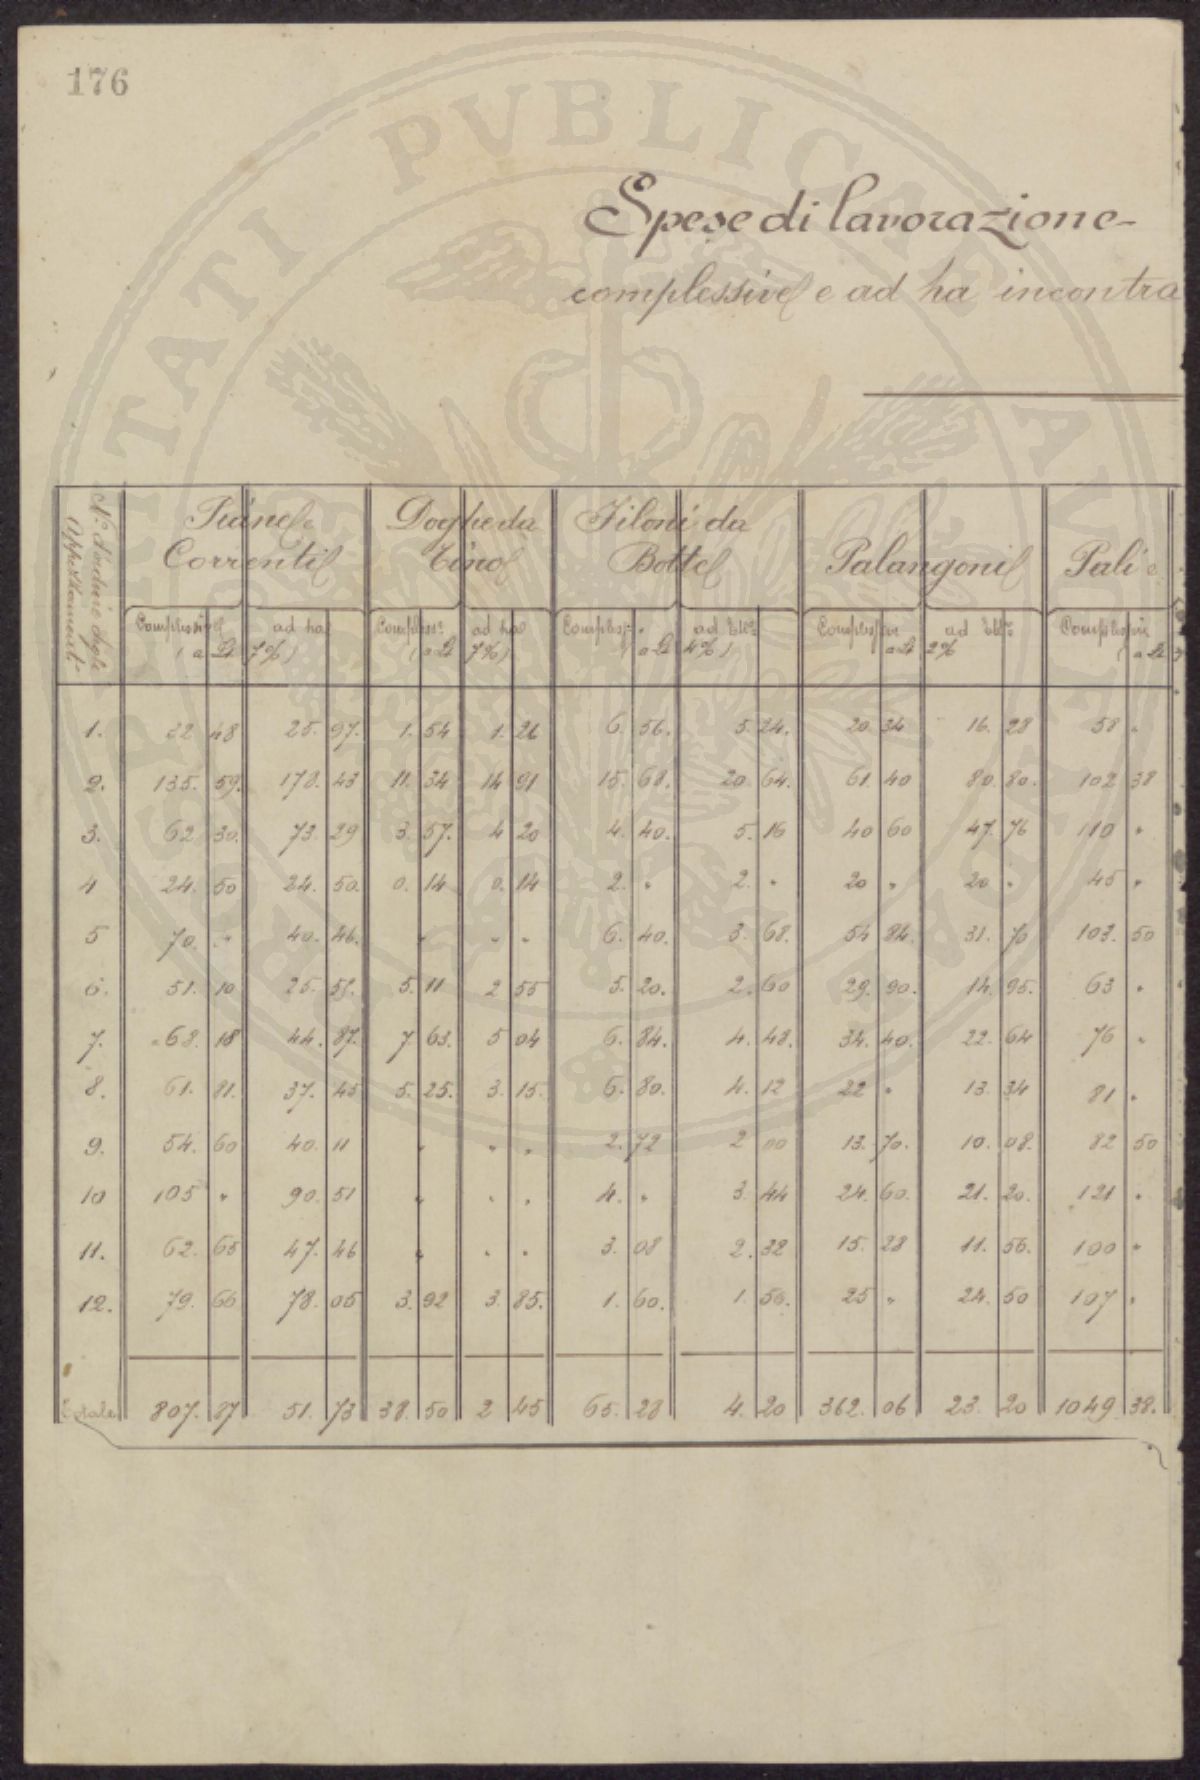 176
Spese di lavorazione
complessive e ad ha incontra
N.° d'ordine degli Appezzamenti
Piane Correnti
Doghe da Tino
Filoni da Botte
Palangoni
Pali e
Complessive ad ha Compless.e ad ha Compless.e ad Ett.e Complessive ad Ett.e Complessive
(a Lt 7%) (a Lt 7%) (a Lt 4%) a Lt 2% (a Lt
1. 22 48 25. 97. 1. 54 1. 26 6. 56. 5. 24. 20 34 16. 28 58 "
2. 135. 59. 178. 43 11. 34 14 91 15. 68. 20 64. 61. 40 80. 80. 102 38
3. 62 30. 73. 29 3. 57. 4 20 4. 40. 5. 16 40 60 47. 76 110 "
4 24. 50 24. 50. 0. 14 0. 14 2. " 2. " 20 " 20 " 45 "
5 70. " 40. 46. " " " 6. 40. 3. 68. 54 84. 31. 70 103. 50
6. 51. 10 25. 55. 5. 11 2 55 5. 20. 2. 60 29. 90. 14. 95. 63 "
7. 68. 18 44. 87. 7. 63. 5 04 6. 84. 4. 48. 34. 40. 22. 64 76 "
8. 61. 81. 37. 45 5. 25. 3. 15. 6. 80. 4. 12 22 " 13. 34 81 "
9. 54. 60 40. 11 " " " 2. 72 2 00 13. 70. 10. 08. 82 50
10 105 " 90. 51 " " " 4. " 3. 44 24. 60. 21. 20. 121 "
11. 62. 65 47. 46 " " " 3. 08 2. 32 15. 28 11. 56. 100 "
12. 79. 66 78. 05 3. 92 3. 85. 1. 60. 1. 56. 25 " 24. 50 107 "
Totale 807. 87 51. 73 38. 50 2 45 65. 28 4. 20 362. 06 23. 20 1049 38.